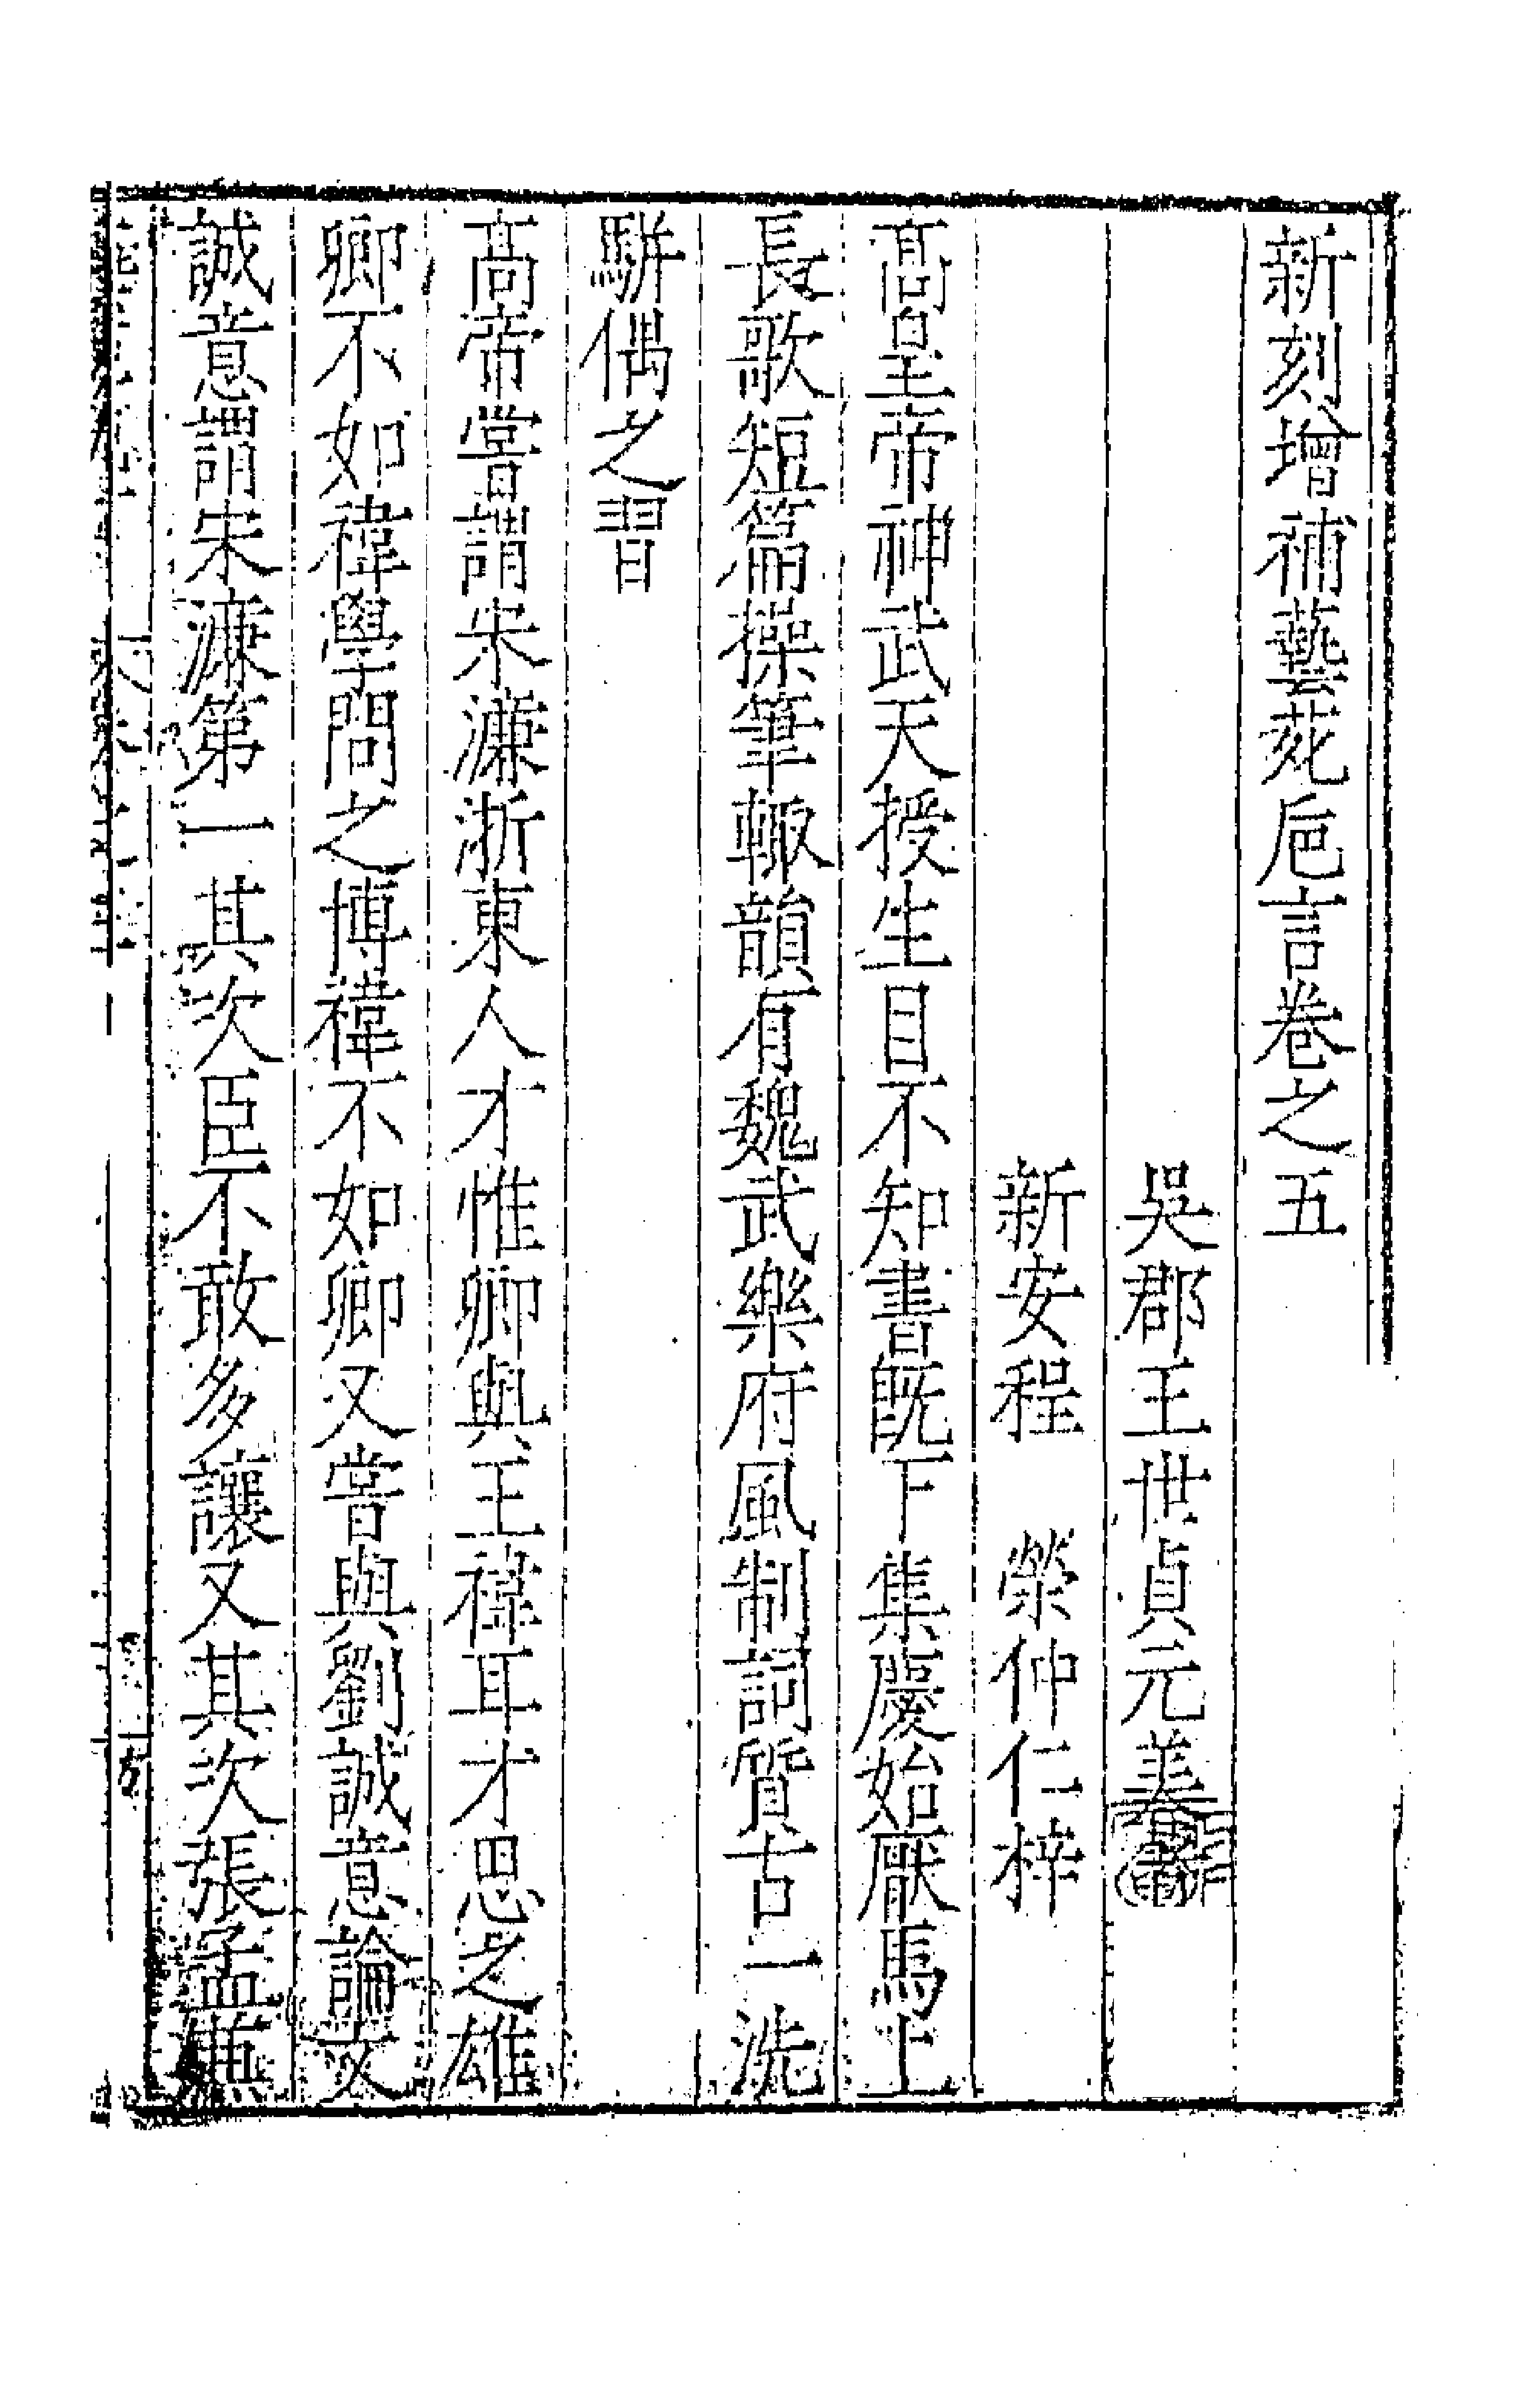 新刻增補藝苑巵言卷之五
吳郡王世貞元美著
新安程　榮仲仁梓
高皇帝神武天授生目不知書旣下集慶始厭馬上
長歌短篇操筆輙韻有魏武樂府風制詞質古一洗
駢偶之習
高帝嘗謂宋濂浙東人才惟卿與王禕耳才思之雄
卿不如禕學問之博禕不如卿又嘗與劉誠意論文
誠意謂宋濂第一其次臣不敢多讓又其次張孟兼